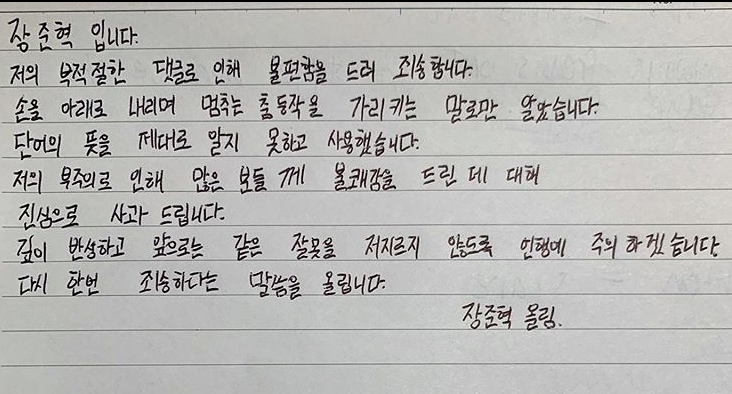 장준혁 입니다.
저의 부적절한 댓글로 인해 불편함을 드려 죄송합니다.
손을 아래로 내리며 멈추는 춤동작을 가리키는 말로만 알았습니다.
단어의 뜻을 제대로 알지 못하고 사용했습니다.
저의 부주의로 인해 많은 분들께 불쾌감을 드린 데 대해
진심으로 사과 드립니다.
깊이 반성하고 앞으로는 같은 잘못을 저지르지 않도록 언행에 주의 하겠습니다
다시 한번 죄송하다는 말씀을 올립니다.
장준혁 올림.